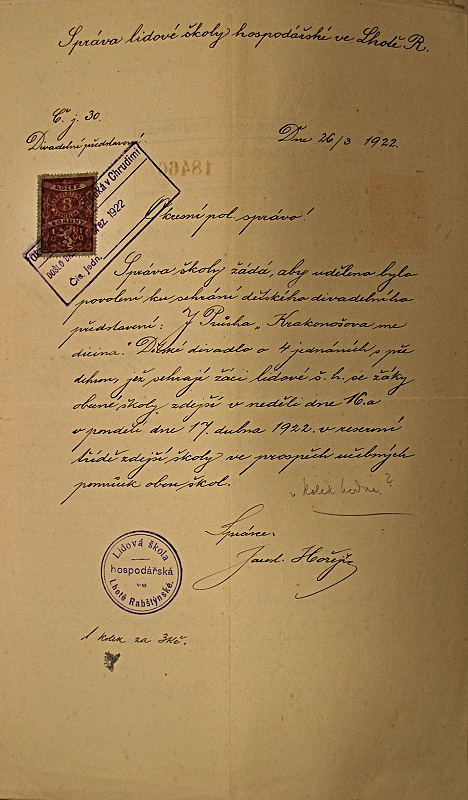 Správa lidové školy hospodářské ve Lhotě R.
Č. j. 30.
Divadelní představení.
Dne 26/3 1922.
KOLEK
3
v Chrudimi
DOŠLO
břez. 1922
Čís. jedn.
Okresní pol. správo!
Správa školy žádá, aby udělena bylo
povolení ku sehrání dětského divadelního
představení: J. Průcha „Krakonošova me
dicina." Dětské divadlo o 4 jednáních s pře
dehrou, jež sehrají žáci lidové š. h. se žáky
obecné školy zdejší v neděli dne 16. a
v pondělí dne 17. dubna 1922. v reservní
třídě zdejší školy ve prospěch učebných
pomůcek oben škol.
v kolik hodin?
Správce:
Jarosl. Hořejš
Lidová škola
hospodářská
ve
Lhotě Rabštýnské.
1 kolek za 3Kč.